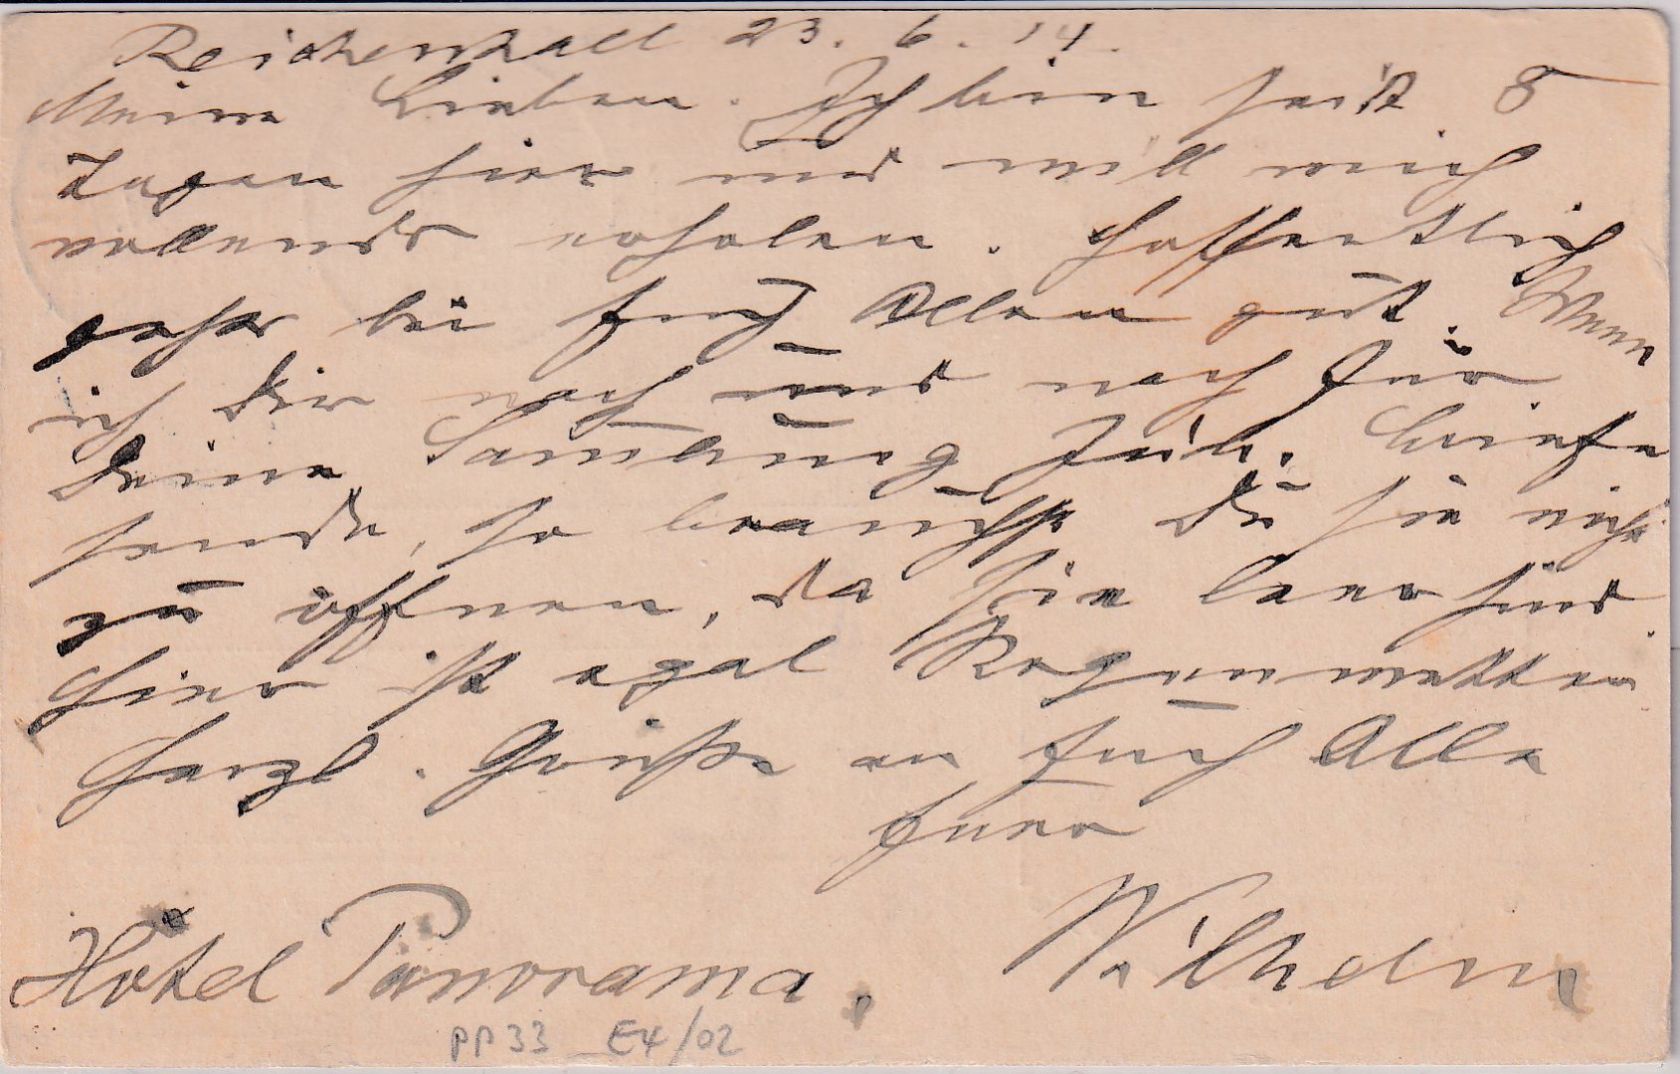 Reichenhall 23. 6. 14.
Meine Lieben. Ich bin seit 8
Tagen hier und will mich
vollends erholen. Hoffentlich
gehts bei Euch Allen gut. Wenn
ich Dir nach und nach für
Deine Samlung Jub. briefe
sende, so brauchst Du sie nicht
zu öffnen, da sie leer sind.
Hier ist egal Regenwetter
Herzl. Grüße an Euch Alle
Euer
Wilhelm
Hotel Panorama.
PP33 E4/02